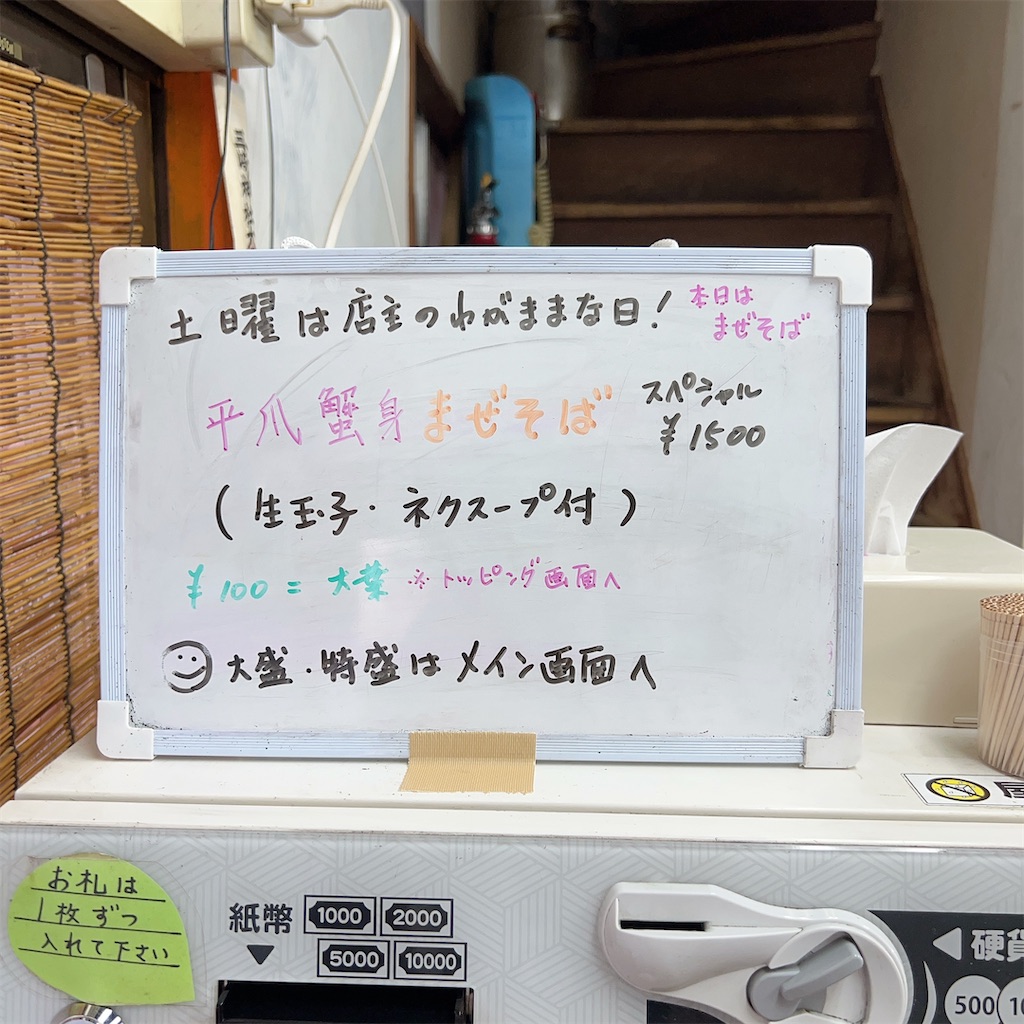 土曜は店主のわがままな日!
本日は
まぜそば
平爪蟹身まぜそば
スペシャル
¥1500
(生玉子・ネクスープ付)
¥100=大葉 ※トッピング画面へ
大盛・特盛はメイン画面へ
お札は
1枚ずつ
入れて下さい
紙幣
1000 2000
5000 10000
硬貨
500